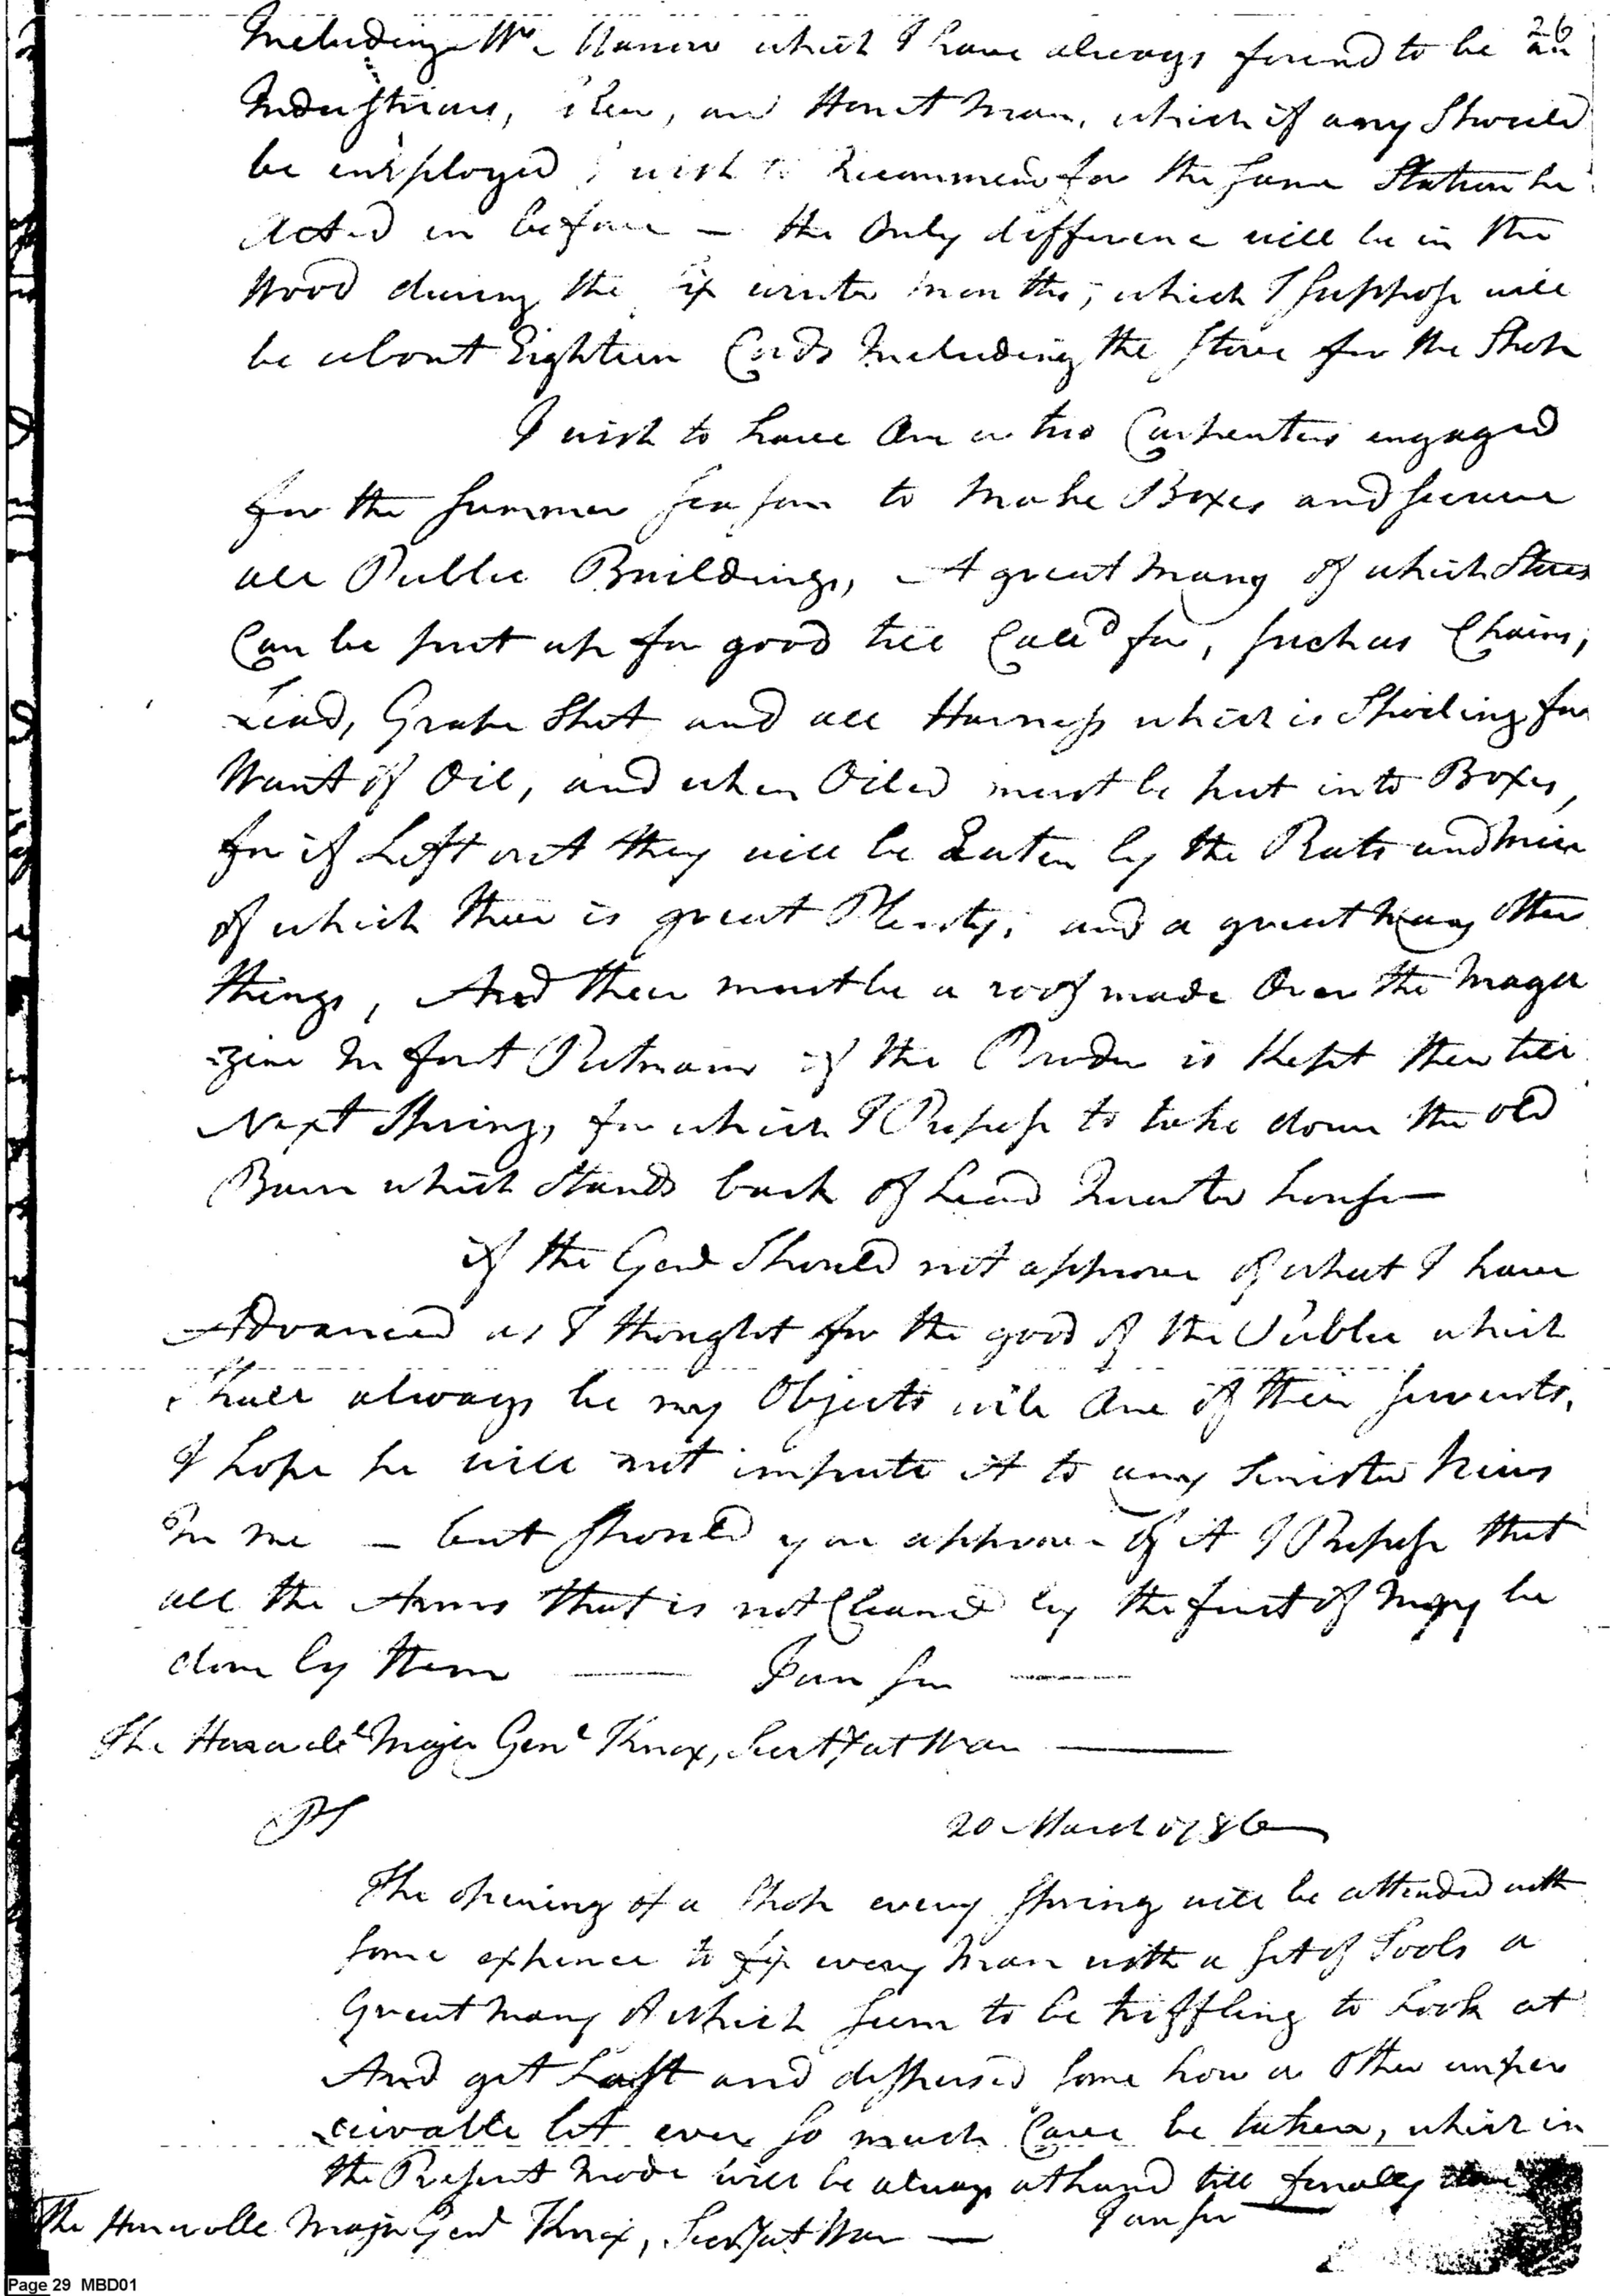 26
Including Mr. which I have always found to be an
Industrious, and Honest man, which if any Should
be employed I wish to Recommend for the same Station he
Acted in before — the Only difference will be in the
Wood during the six winter months, which I suppose will
be about Eighteen Cords Including the Stove for the Shop
I wish to have One or two Carpenters engaged
for the summer season to make Boxes and secure
all Public Buildings, A great many of which Stores
Can be put up for good till Calld for, such as Chains,
Lead, Grape Shot and all Harness which is Spoiling for
Want of Oil, and when Oiled must be put into Boxes,
for if Left out they will be Eaten by the Rats and mice
of which there is great Plenty, and a great many other
things, And there must be a roof made Over the Maga
zine In fort Putnam if the Powder is Kept there till
Next Spring, for which I Propose to take down the old
Barn which Stands back of head Quarter house —
if the Genl Should not approve of what I have
Advanced as I thought for the good of the Public which
shall always be my Objects while One of their servants,
I hope he will not impute it to any Sinister Views
In me — but should you approve of it I Propose that
all the Arms that is not Cleaned by the first of May be
done by them — I am sir —
The Honorable Major Genl Knox, Secrty at War —
PS 20 March 1786
The opening of a Shop every Spring will be attended with
some expence to fix every man with a set of Tools a
Great many of which seem to be triffling to Look at
And get Lost and dispersed some how or Other unper
ceivable let ever so much Care be taken, which in
the Present mode will be always at hand till finally done
I am sir
The Honorable Major Genl Knox, Secrty at War —
Page 29 MBD01